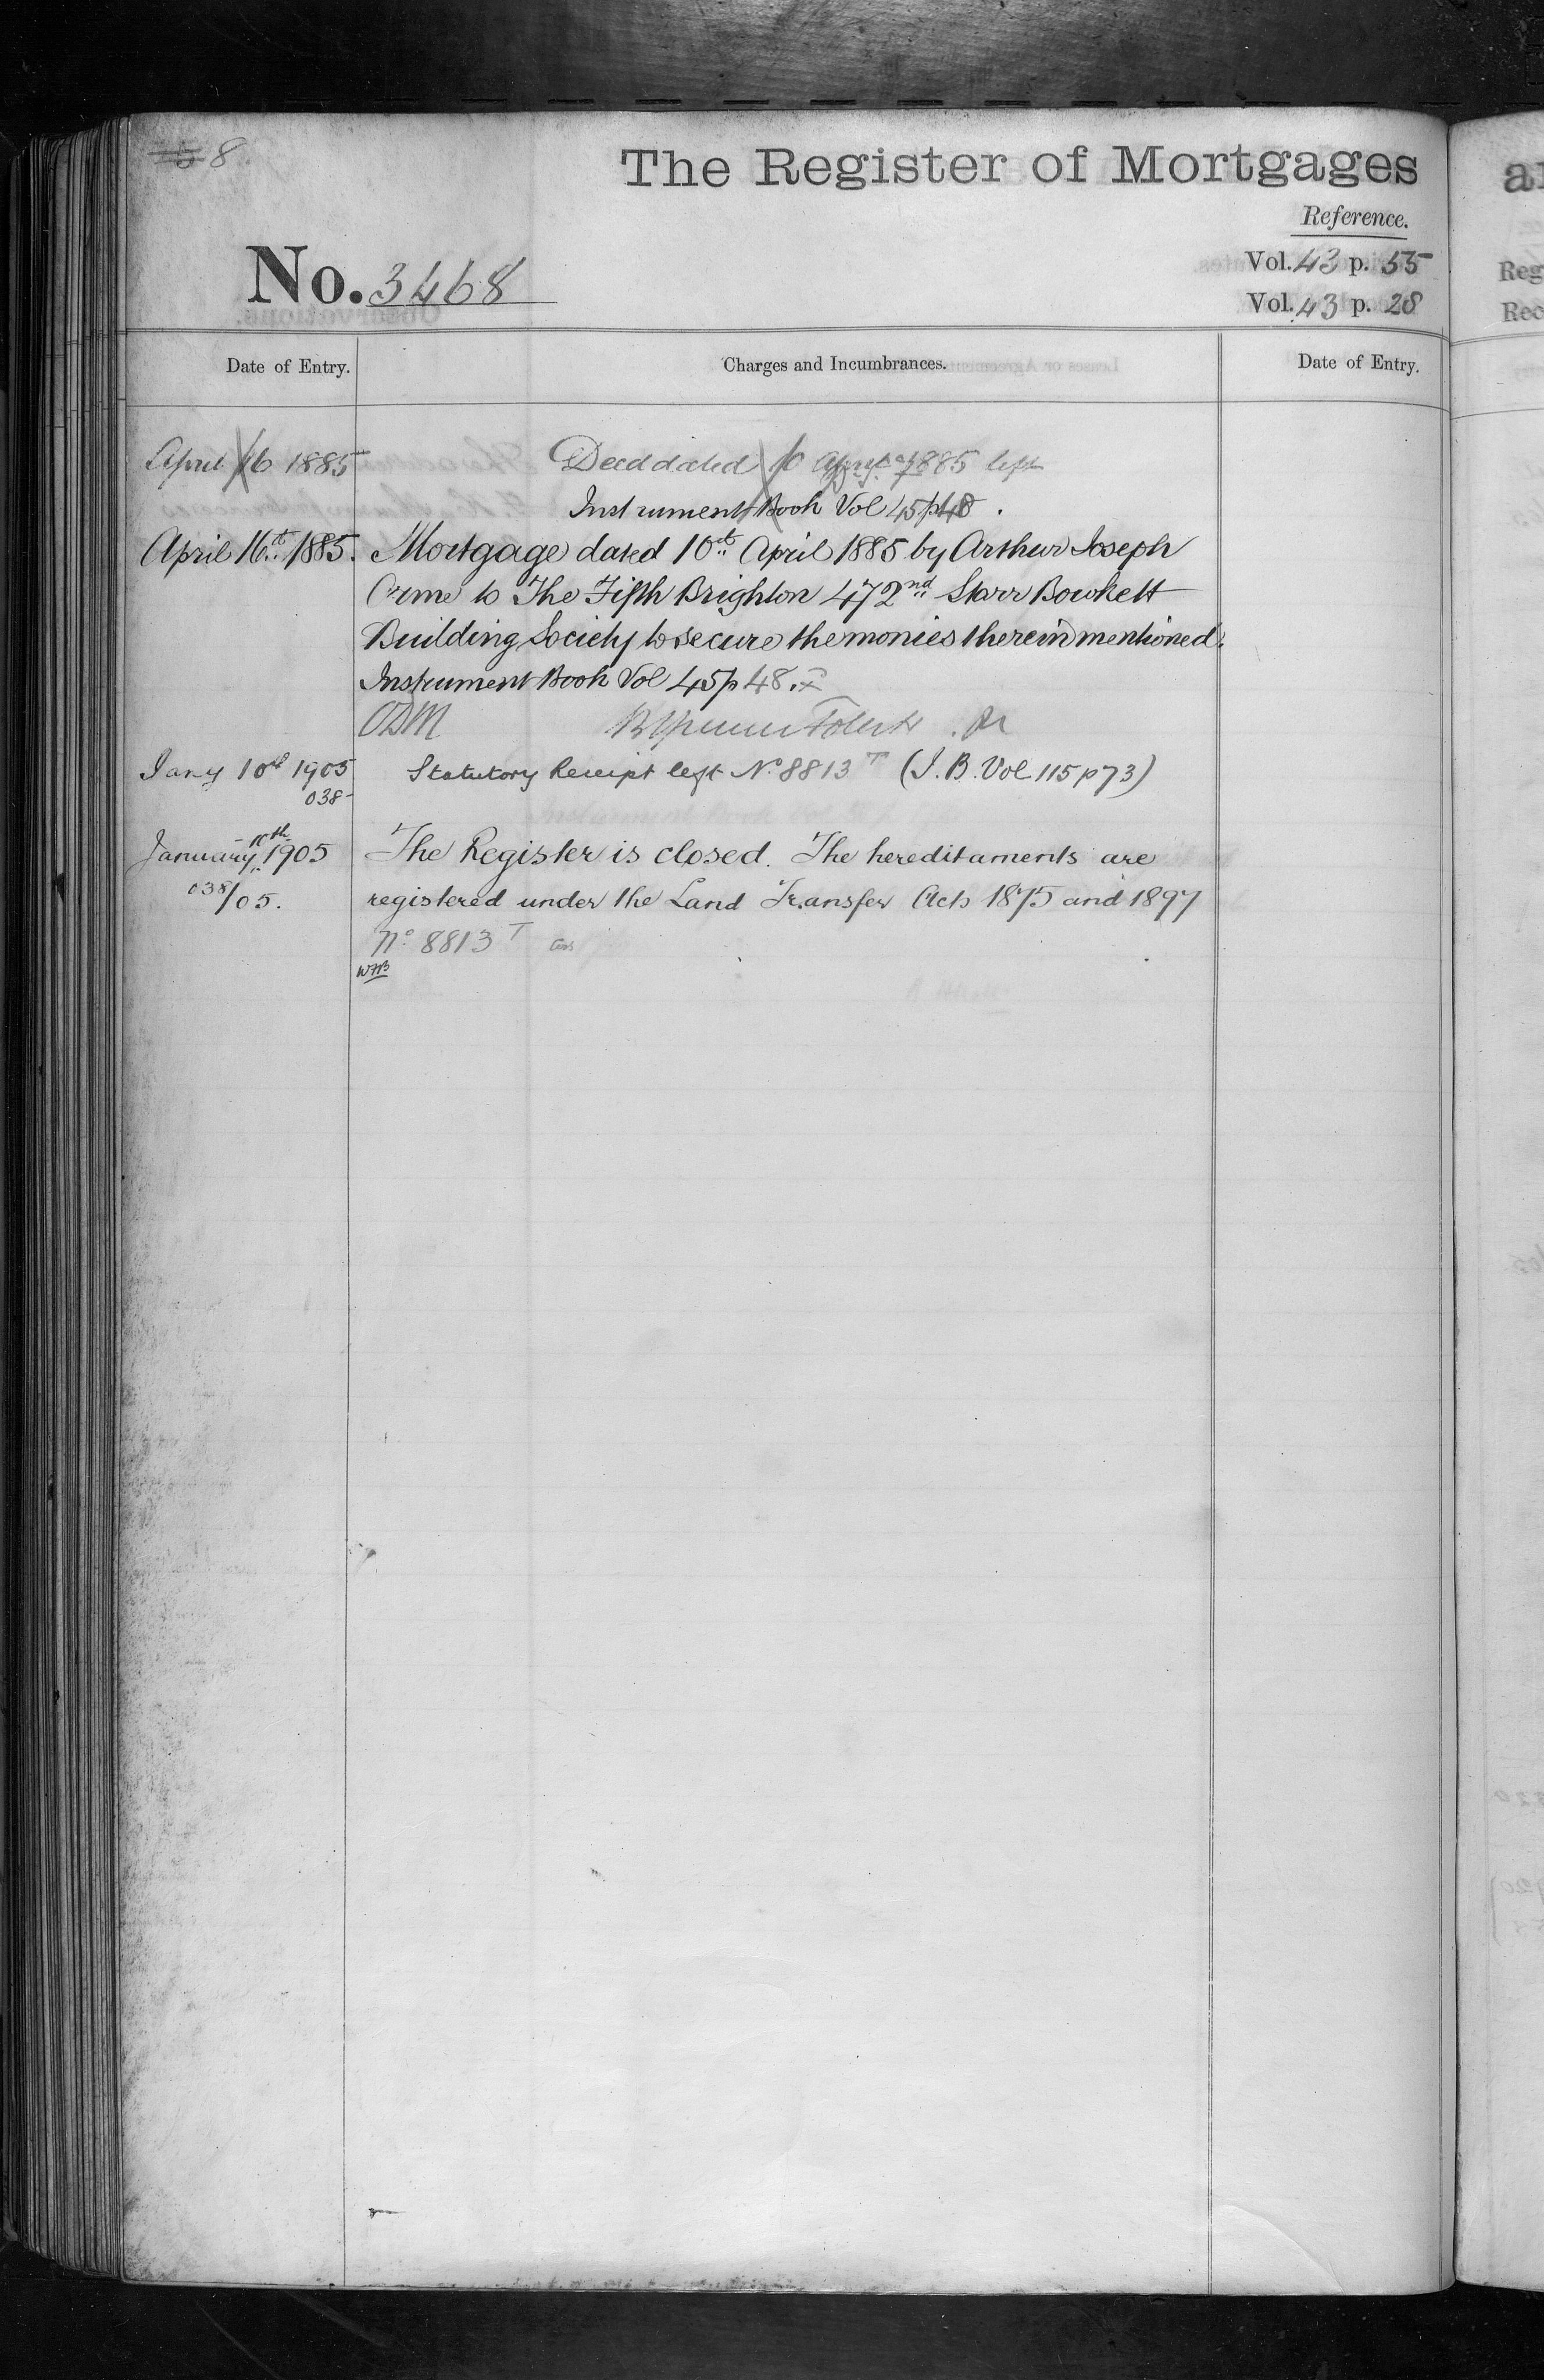 8
The Register of Mortgages
Reference.
No. 3468
Vol. 43 p. 55
Vol. 43 p. 28
Date of Entry.
Charges and Incumbrances.
Date of Entry.
April 16 1885
Deed dated 10 April 1885 left
Instrument Book Vol 45 p 48.
April 16th 1885.
Mortgage dated 10th April 1885 by Arthur Joseph
Orme to The Fifth Brighton 472nd Starr Bowkett
Building Society to secure the monies therein mentioned.
Instrument Book Vol 45 p 48.
Jany 10th 1905
038
Statutory Receipt left No 8813 T (I. B. Vol 115 p 73)
January 10th 1905
038/05.
The Register is closed. The hereditaments are
registered under the Land Transfer Acts 1875 and 1897
No 8813 T
WHB
Reg
Rec